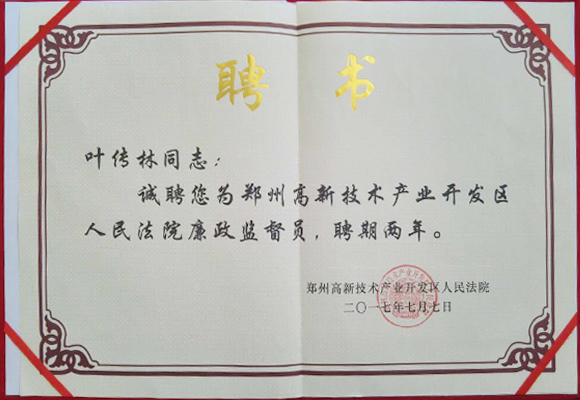 聘 书
叶传林同志：
诚聘您为郑州高新技术产业开发区
人民法院廉政监督员，聘期两年。
郑州高新技术产业开发区人民法院
二〇一七年七月七日